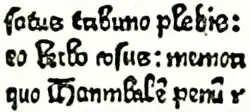 fatus tribuno plebis:
eo verbo vsus: memor
quo Hannibalē penū r